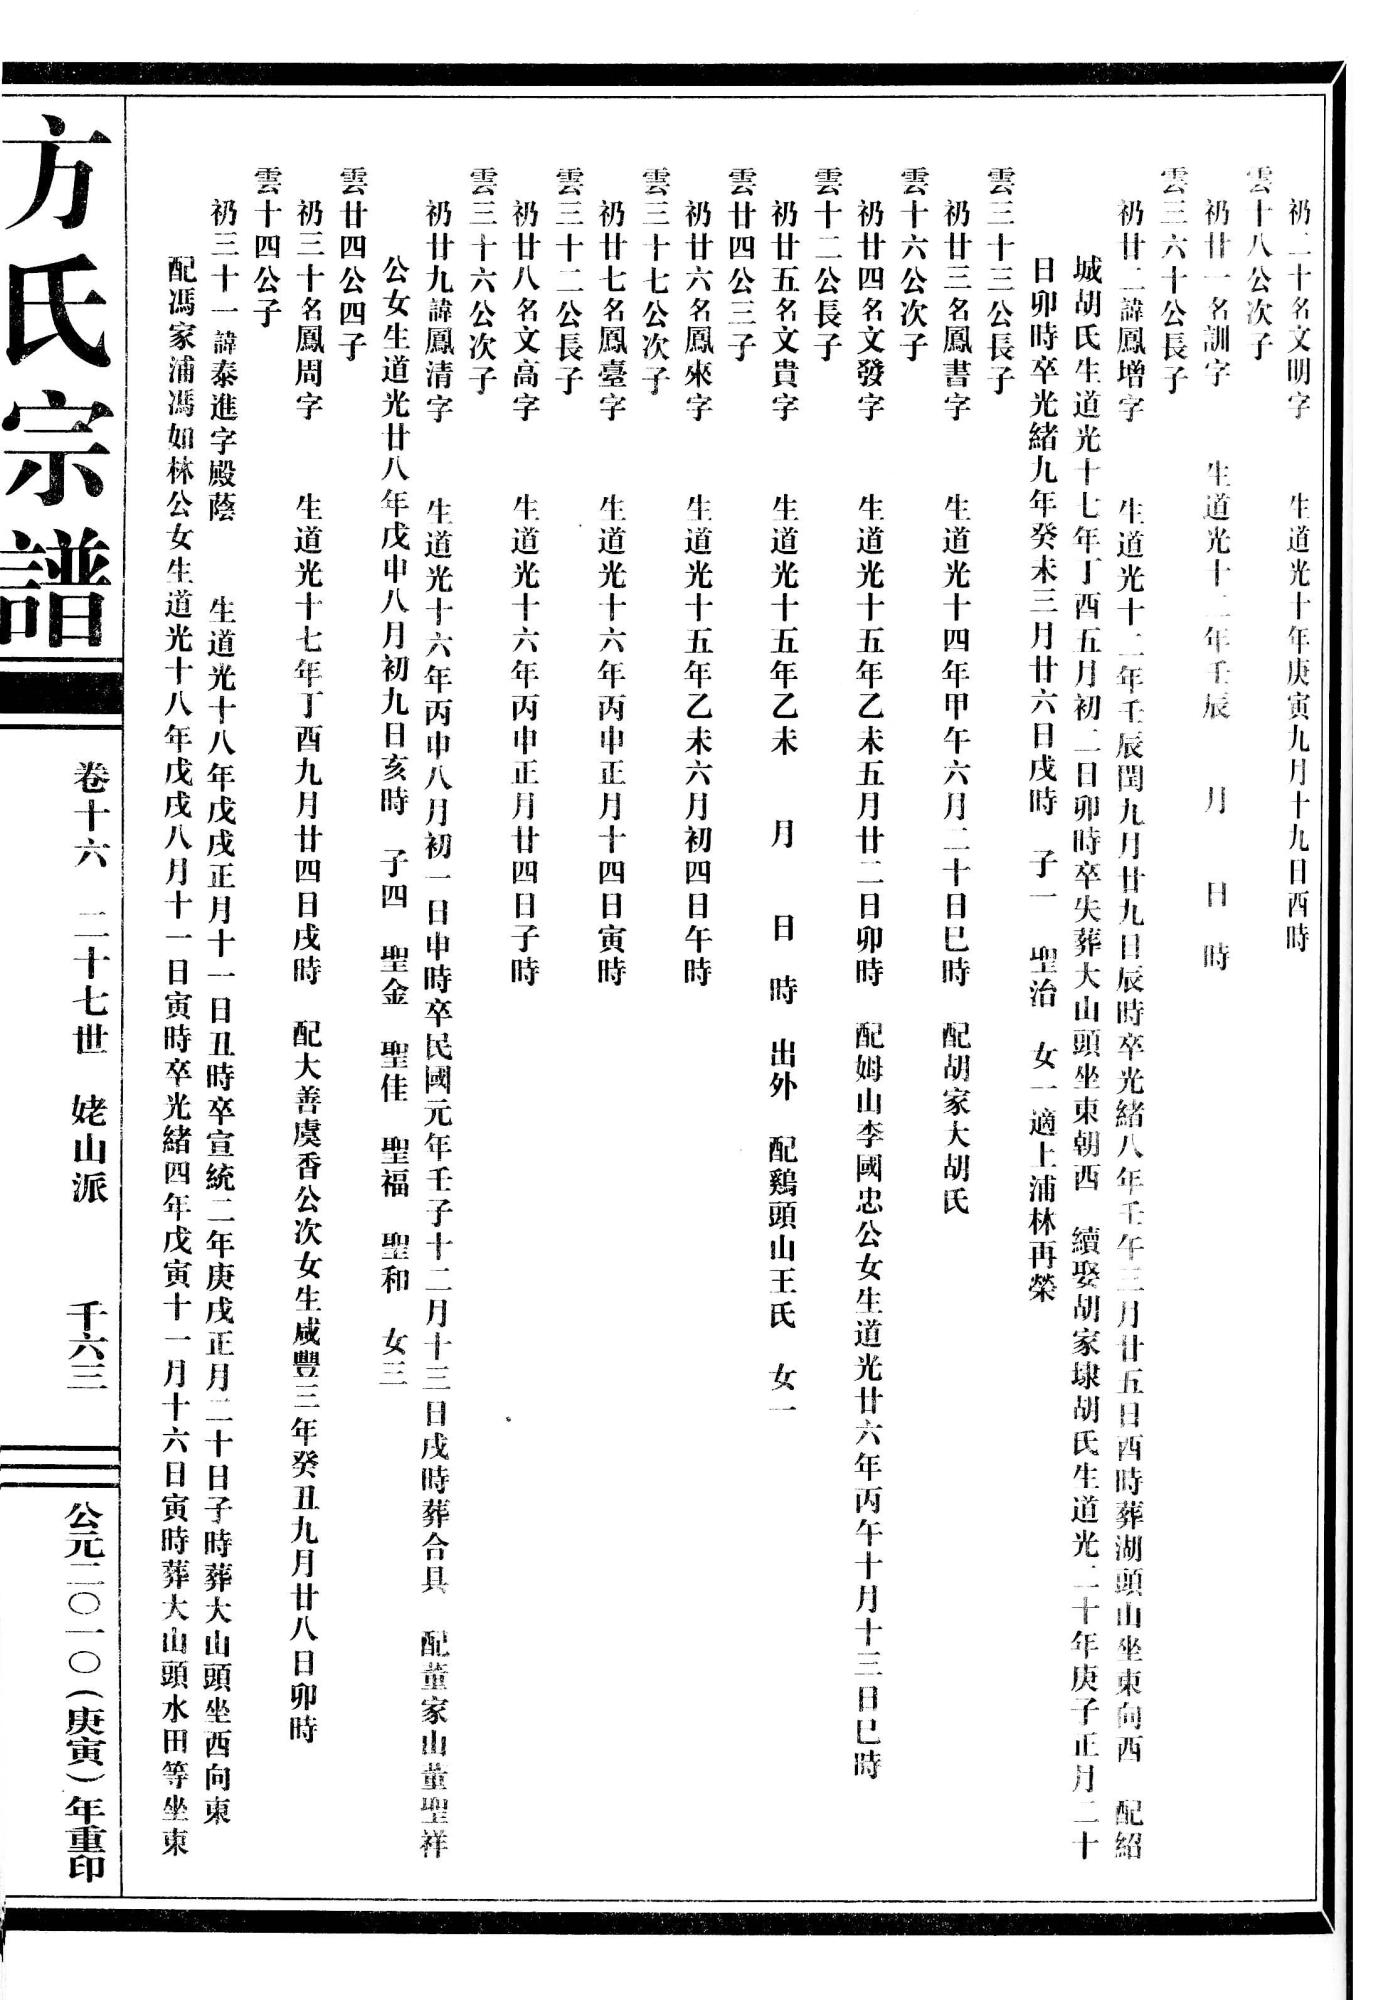 礽二十名文明字　　生道光十年庚寅九月十九日酉時
雲十八公次子
礽廿一名訓字　　生道光十二年壬辰　月　日　時
雲三六十公長子
礽廿二諱鳳增字　　生道光十二年壬辰閏九月廿九日辰時卒光緒八年壬午三月廿五日酉時葬湖頭山坐東向西　配紹
城胡氏生道光十七年丁酉五月初二日卯時卒失葬大山頭坐東朝西　續娶胡家埭胡氏生道光二十年庚子正月二十
日卯時卒光緒九年癸未三月廿六日戌時　子一　聖治　女一適上浦林再榮
雲三十三公長子
礽廿三名鳳書字　　生道光十四年甲午六月二十日巳時　配胡家大胡氏
雲十六公次子
礽廿四名文發字　　生道光十五年乙未五月廿二日卯時　配姆山李國忠公女生道光廿六年丙午十月十三日巳時
雲十二公長子
礽廿五名文貴字　　生道光十五年乙未　月　日　時　出外　配鷄頭山王氏　女一
雲廿四公三子
礽廿六名鳳來字　　生道光十五年乙未六月初四日午時
雲三十七公次子
礽廿七名鳳臺字　　生道光十六年丙申正月十四日寅時
雲三十二公長子
礽廿八名文高字　　生道光十六年丙申正月廿四日子時
雲三十六公次子
礽廿九諱鳳清字　　生道光十六年丙申八月初一日申時卒民國元年壬子十二月十三日戌時葬合具　配董家山董聖祥
公女生道光廿八年戊申八月初九日亥時　子四　聖金　聖佳　聖福　聖和　女三
雲廿四公四子
礽三十名鳳周字　　生道光十七年丁酉九月廿四日戌時　配大善虞香公次女生咸豐三年癸丑九月廿八日卯時
雲十四公子
礽三十一諱泰進字殿蔭　　生道光十八年戊戌正月十一日丑時卒宣統二年庚戌正月二十日子時葬大山頭坐西向東
配馮家浦馮如林公女生道光十八年戊戌八月十一日寅時卒光緒四年戊寅十一月十六日寅時葬大山頭水田等坐東
方氏宗譜
卷十六　二十七世　姥山派　千六三
公元二〇一〇（庚寅）年重印